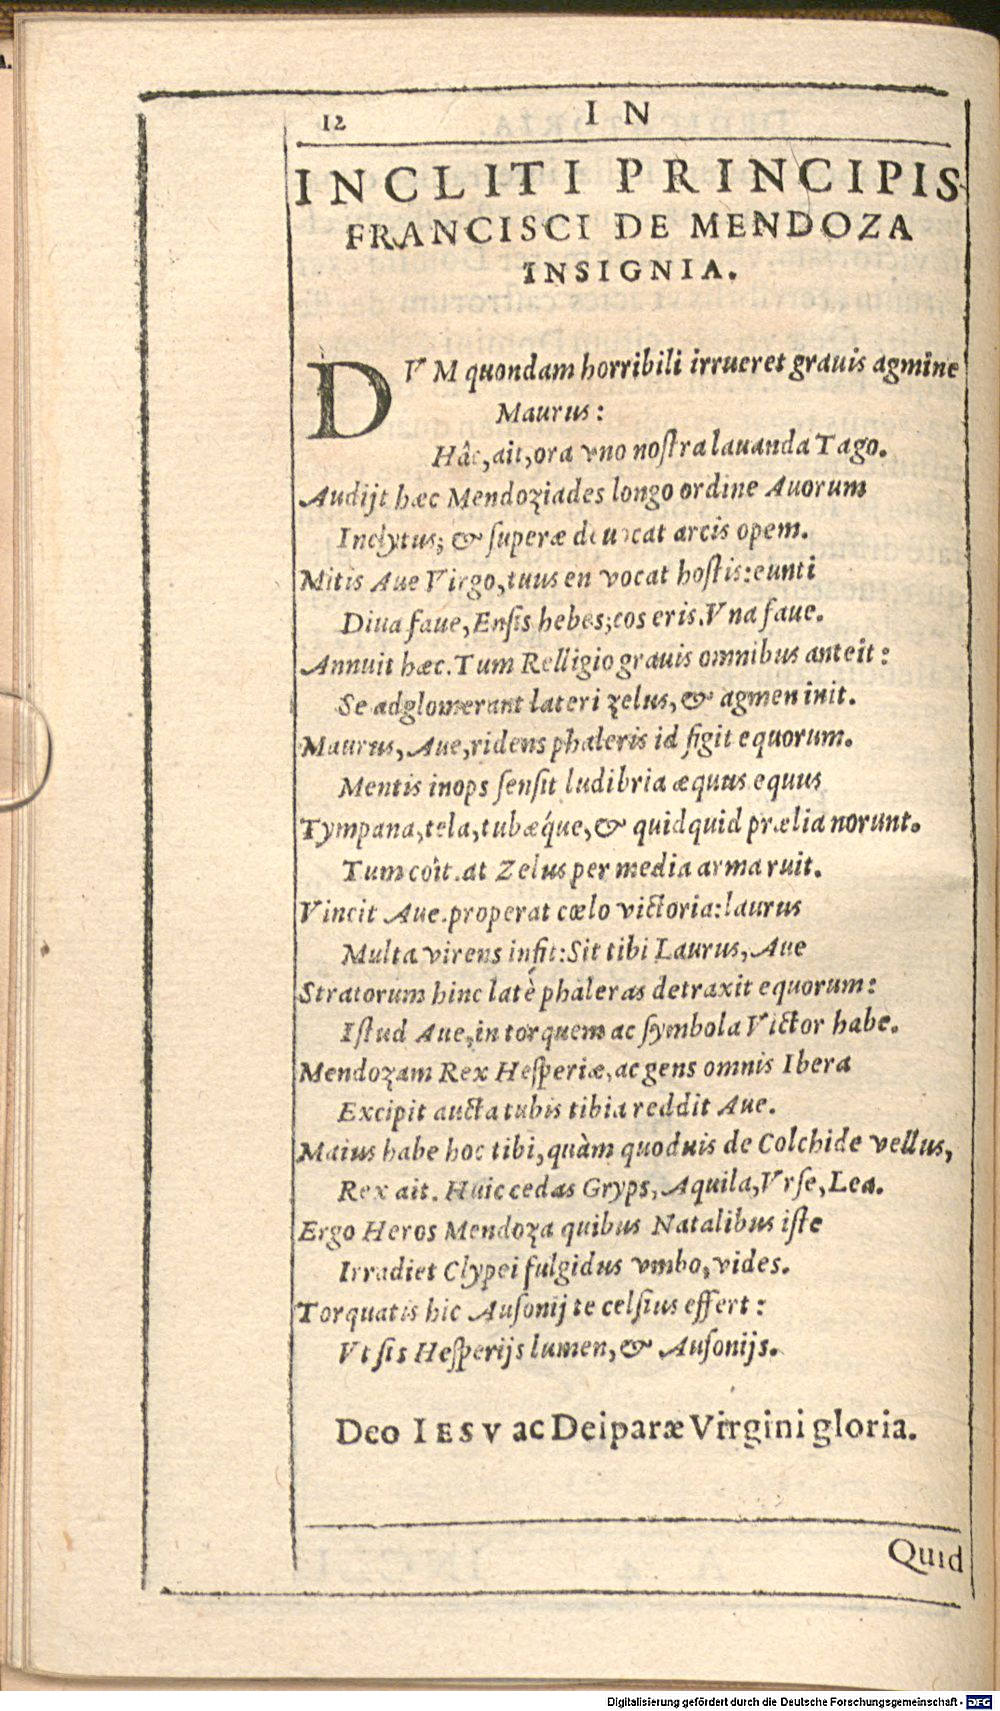 12 IN
INCLITI PRINCIPIS
FRANCISCI DE MENDOZA
INSIGNIA.
DVM quondam horribili irrueret grauis agmine
Maurus:
Hâc, ait, ora vno nostra lauanda Tago.
Audijt hæc Mendoziades longo ordine Auorum
Inclytus; & superæ deuocat arcis opem.
Mitis Aue Virgo, tuus en vocat hostis: eunti
Diua faue, Ensis hebes; cos eris. Vna faue.
Annuit hæc. Tum Relligio grauis omnibus anteit:
Se adglomerant lateri zelus, & agmen init.
Maurus, Aue, ridens phaleris id figit equorum.
Mentis inops sensit ludibria æquus equus
Tympana, tela, tubæq́ue, & quidquid prælia norunt.
Tum coît. at Zelus per media arma ruit.
Vincit Aue. properat cœlo victoria: laurus
Multa virens infit: Sit tibi Laurus, Aue
Stratorum hinc latè phaleras detraxit equorum:
Istud Aue, in torquem ac symbola Victor habe.
Mendozam Rex Hesperiæ, ac gens omnis Ibera
Excipit aucta tubis tibia reddit Aue.
Maius habe hoc tibi, quàm quoduis de Colchide vellus,
Rex ait. Huic cedas Gryps, Aquila, Vrse, Lea.
Ergo Heros Mendoza quibus Natalibus iste
Irradiet Clypei fulgidus vmbo, vides.
Torquatis hic Ausonij te celsius effert:
Vt sis Hesperijs lumen, & Ausonijs.
Deo IESV ac Deiparæ Virgini gloria.
Quid
Digitalisierung gefördert durch die Deutsche Forschungsgemeinschaft - DFG